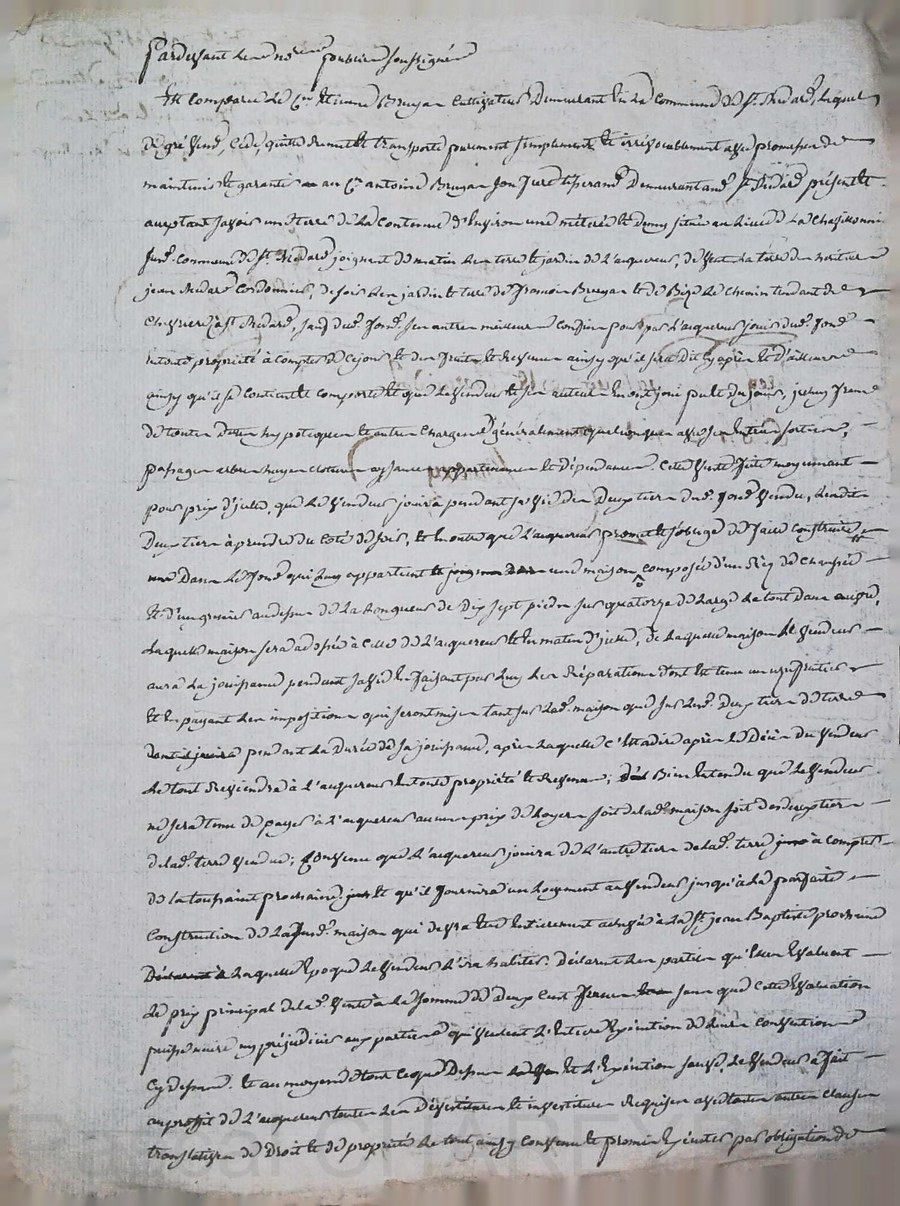 Pardevant les nores publics soussignés
Est comparu le Cen Etienne Bruyas cultivateur demeurant en la commune de St. Médard, lequel
de gré vend, cède, quitte, remet et transporte purement simplement et irrévocablement avec promesse de
maintenir et garantir au Cen antoine Bruyas son frère tisserand demeurant aud. St. Médard présent et
acceptant savoir une terre de la contenue d'environ une métérée et demy située au lieu de la
susd. commune de St. Médard joignant de matin les terre et jardin de l'acquereur, de vent la terre des héritiers
jean Médard cordonnier, de soir les jardin et terre de françois Bruyas et de Bize le chemin tendant de
Chevrières à St. Médard, sauf dud. fond. ses autres meilleurs confins pour par l'acquereur jouir dud. fond
en toute propriété à compter de ce jour et des fruits et revenus ainsy qu'il sera dit cy après et d'ailleurs
ainsy qu'il se contient et comporte et que le vendeur et ses auteurs en ont joui pu et du jouir, jceluy franc
de toutes dettes hypotecques et autres charges généralement quelconques avec ses entrées sorties,
passages arbres hayes clotures aysances appartenances et dépendances. Cette vente faite moyennant
pour prix d'icelle, que le vendeur jouira pendant sa vie des deux tiers dud. fond vendu, lesdits
deux tiers à prendre du coté de soir, et en outre que l'acquereur promet et s'oblige de faire construire
dans le fond qui luy appartient une maison composée d'un Rez de chaussée
et d'un grenier au dessus de la longueur de dix sept pieds sur quatorze de large le tout dans œuvre,
laquelle maison sera adossée à celle de l'acquereur et en matin d'icelle, de laquelle maison le vendeur
aura la jouissance pendant sa vie en faisant par luy les Réparations dont est tenu un usufruitier
et en payant les impositions qui seront mises tant sur lad. maison que sur lesd. deux tiers de terre
dont il jouira pendant la durée de sa jouissance, après laquelle c'est à dire après le Décès du vendeur
le tout reviendra à l'acquereur en toute propriété et revenus; Bien entendu que le vendeur
ne sera tenu de payer à l'acquereur aucun prix de loyer soit de lad. maison soit des deux tiers
de lad. terre vendue; Convenu que l'acquereur jouira de l'autre tiers de lad. terre à compter
de la toussaint prochaine et qu'il fournira un logement au vendeur jusqu'à la parfaite
construction de la susd. maison qui devra être entierement achevée à la St. jean Baptiste prochaine
à laquelle époque le vendeur l'ira habiter. Déclarent les parties qu'elles évaluent
le prix principal de lad. vente à la somme de deux cent francs sans que cette évaluation
puisse nuire ny préjudicier aux parties qui veulent l'entiere exécution de leurs conventions
cy dessus. Et au moyen de tout ce que dessus et l'exécution sauve, le vendeur a fait
au profit de l'acquereur toutes les dévestitures et investitures Requises avec toutes autres clauses
translatives de droit et de propriété le tout ainsy convenu et promis exécuter par obligation de